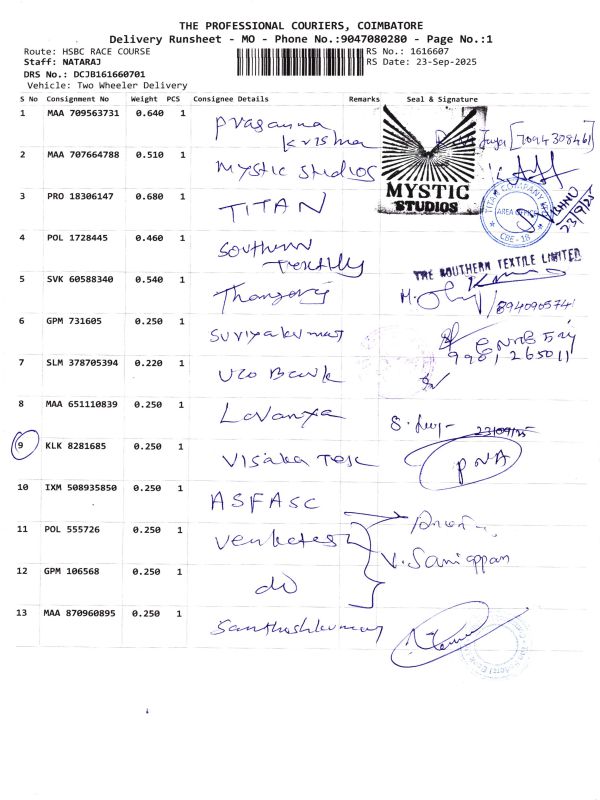 THE PROFESSIONAL COURIERS, COIMBATORE
Delivery Runsheet - MO - Phone No.:9047080280 - Page No.:1
Route: HSBC RACE COURSE
RS No.: 1616607
Staff: NATARAJ
RS Date: 23-Sep-2025
DRS No.: DCJB161660701
Vehicle: Two Wheeler Delivery
S No Consignment No Weight PCS Consignee Details Remarks Seal & Signature
1 MAA 709563731 0.640 1 Prasanna Krishna [7094308461]
2 MAA 707664788 0.510 1 Mystic Studios
MYSTIC
STUDIOS
3 PRO 18306147 0.680 1 TITAN
AREA OFFICE
CBE - 18
VISHNU
23/9/25
4 POL 1728445 0.460 1 Southern
THE SOUTHERN TEXTILE LIMITED
5 SVK 60588340 0.540 1 Thangaraj
6 GPM 731605 0.250 1 Suriyakumar
7 SLM 378705394 0.220 1 Uco Bank
8 MAA 651110839 0.250 1 Lavanya
23/09/25
9 KLK 8281685 0.250 1 Visaka
10 IXM 508935850 0.250 1 ASFASC
11 POL 555726 0.250 1 Venkates
V. Saniappan
12 GPM 106568 0.250 1 do
13 MAA 870960895 0.250 1 Santhoshkumar